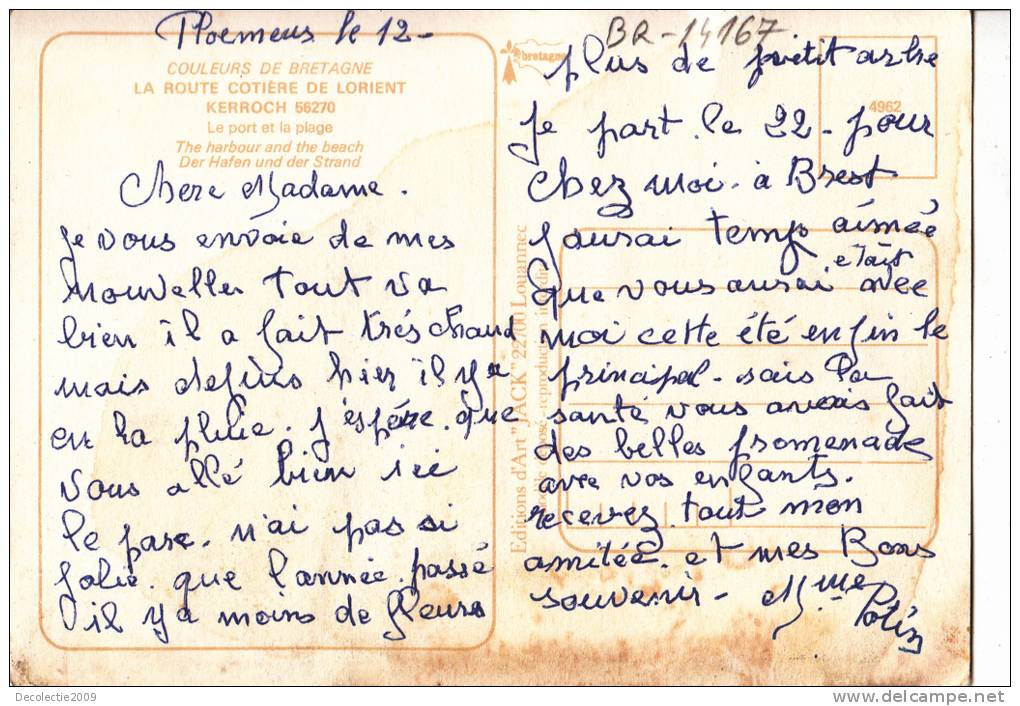 Ploemeus le 12-
COULEURS DE BRETAGNE
LA ROUTE COTIÈRE DE LORIENT
KERROCH 56270
Le port et la plage
The harbour and the beach
Der Hafen und der Strand
Chere Madame.
Je vous envoie de mes
nouvelles tout va
bien il a fait trés chaud
mais depuis hier il y a
eu la pluie. j'espére que
vous allé bien ici
le parc. n'ai pas si
jolie. que l'année. passé
il y a moins de fleurs
BR-14167
bretagne
4962
plus de petit arbre
Je part. le 22 - pour
chez moi. à Brest
J'ausai temp aimée
que vous ausai était avec
moi cette été enfin le
principal - sais la
santé vous avais fait
des belles promenade
avec vos enfants.
recevez tout mon
amitée. et mes Bons
souvenir - Mme
Potin
Editions d'Art "JACK" 22700 Louannec
reproduction
Decolectie2009
www.delcampe.net